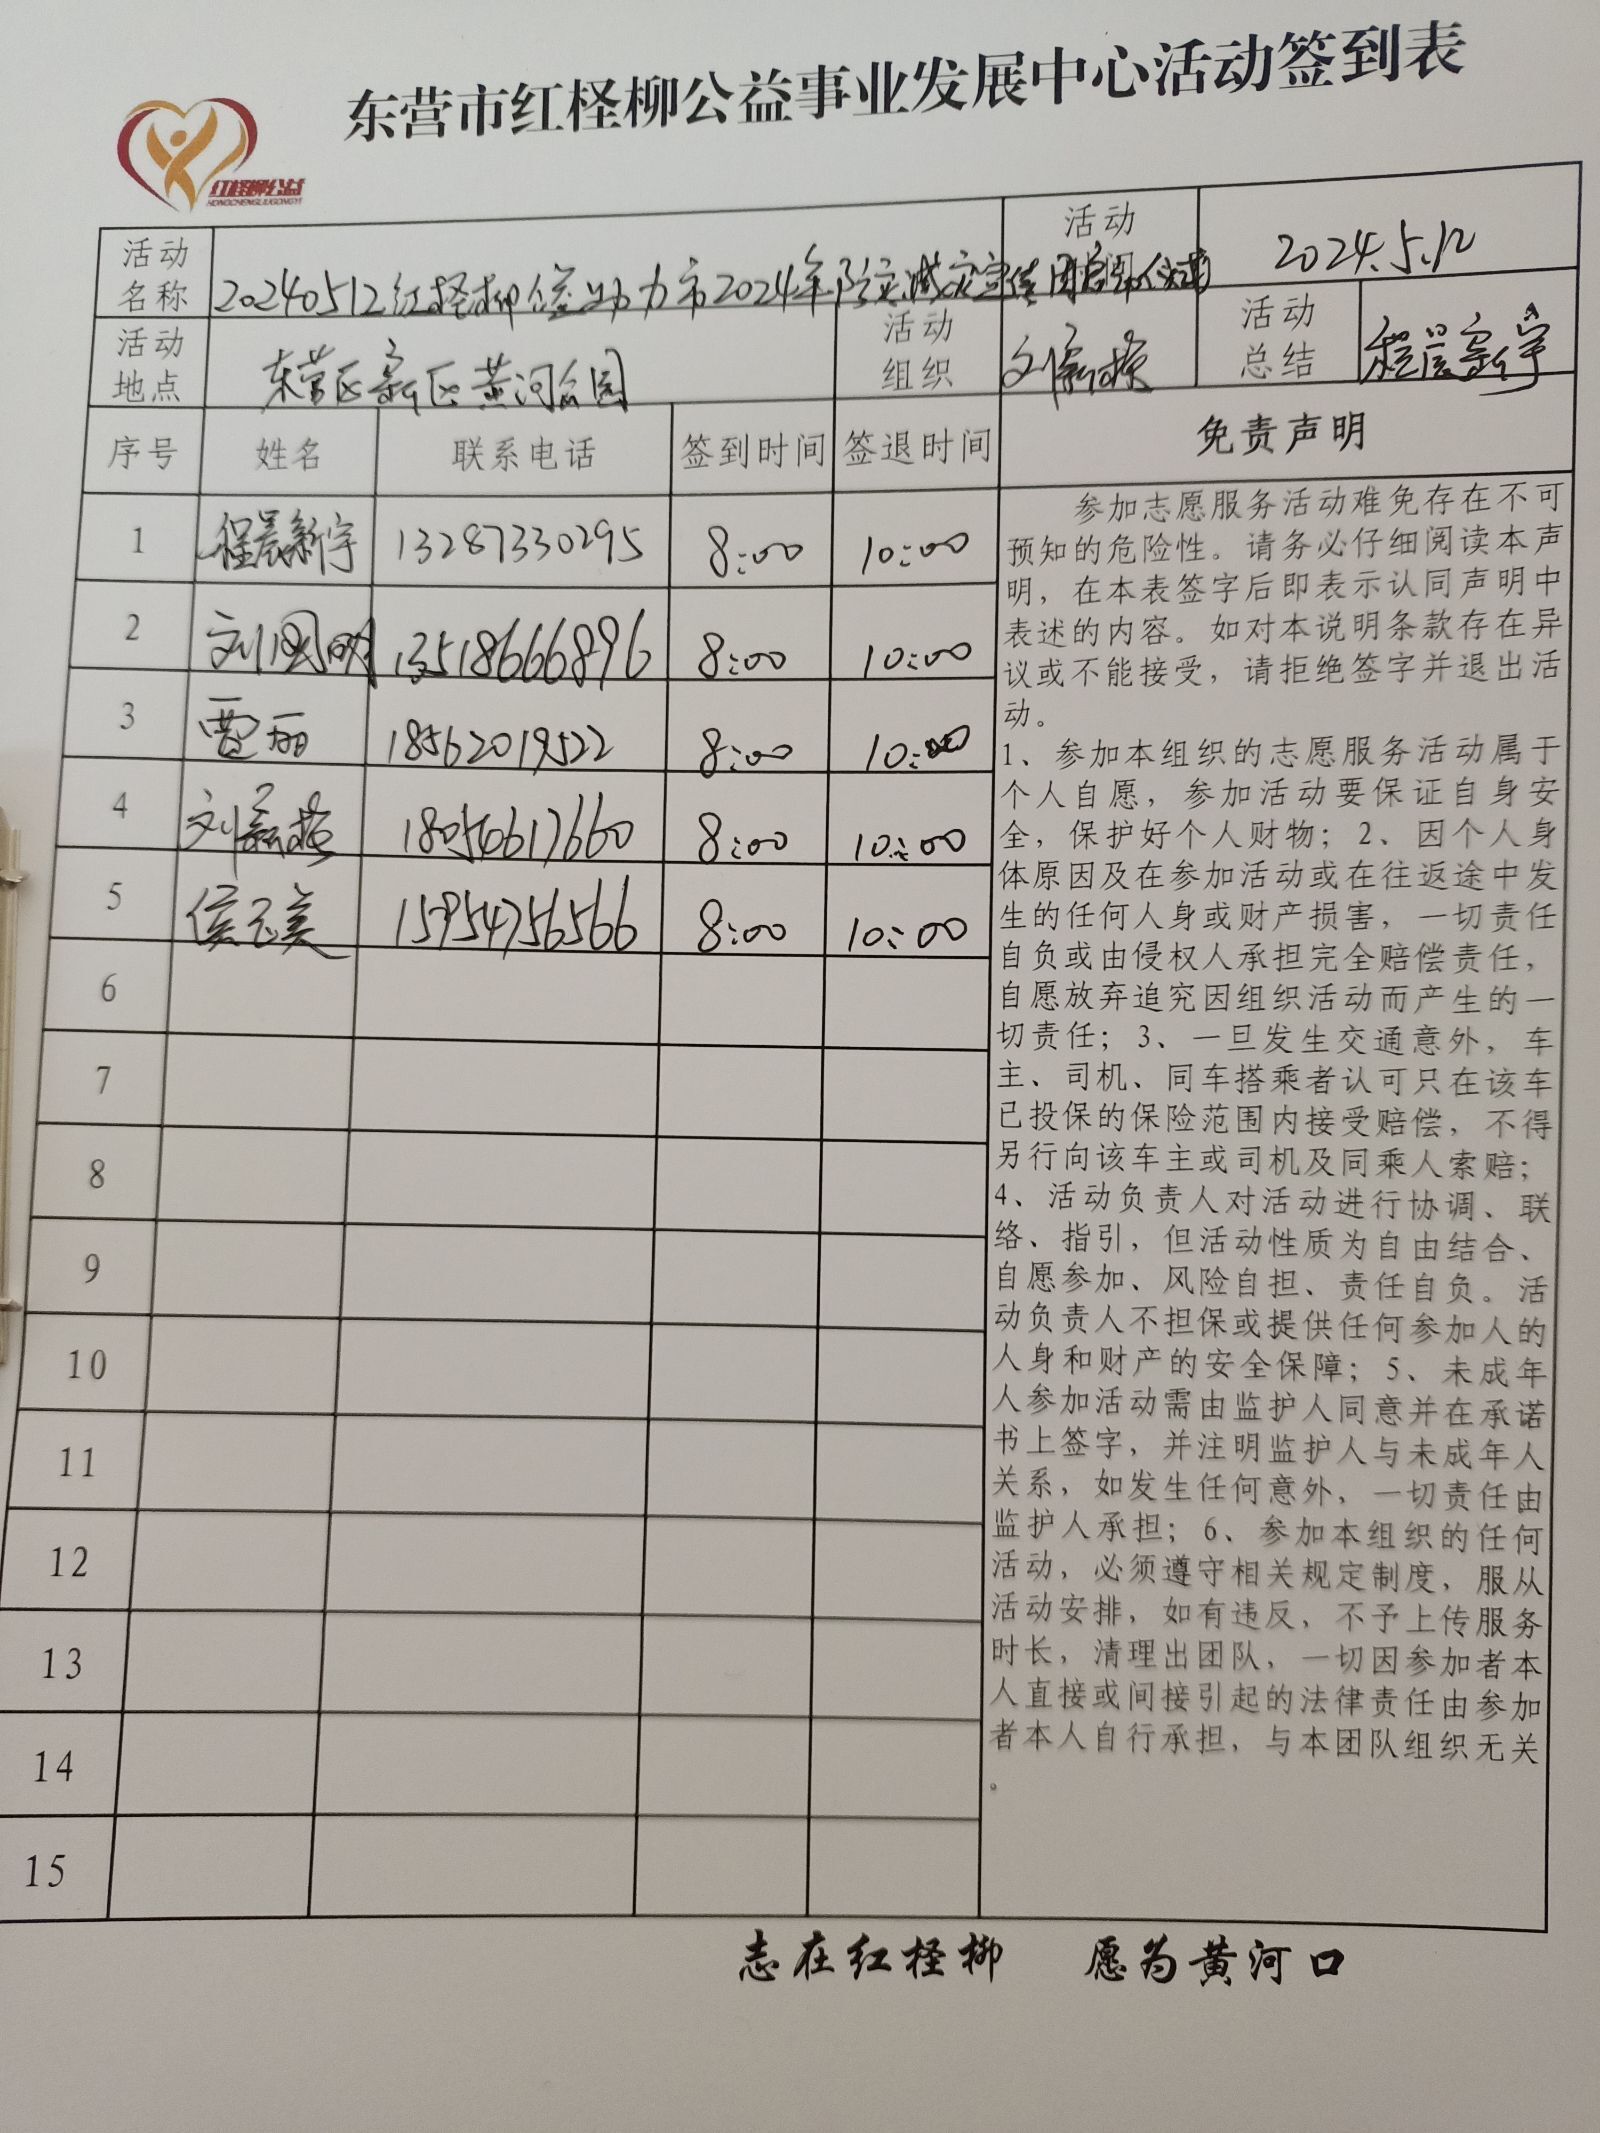 东营市红柽柳公益事业发展中心活动签到表
红柽柳公益
HONGCHENGLIUGONGYI
活动名称 20240512红柽柳公益助力市2024年防灾减灾宣传周启动仪式 活动 2024.5.12
活动地点 东营区新区黄河公园 活动组织 刘 活动总结 程晨新宇
序号 姓名 联系电话 签到时间 签退时间 免责声明
1 程晨新宇 13287330295 8:00 10:00
2 刘国明 13518666896 8:00 10:00
3 贾丽 18562019522 8:00 10:00
4 刘 18054617660 8:00 10:00
5 侯玉美 15954756566 8:00 10:00
6
7
8
9
10
11
12
13
14
15
参加志愿服务活动难免存在不可
预知的危险性。请务必仔细阅读本声
明，在本表签字后即表示认同声明中
表述的内容。如对本说明条款存在异
议或不能接受，请拒绝签字并退出活
动。
1、参加本组织的志愿服务活动属于
个人自愿，参加活动要保证自身安
全，保护好个人财物；2、因个人身
体原因及在参加活动或在往返途中发
生的任何人身或财产损害，一切责任
自负或由侵权人承担完全赔偿责任，
自愿放弃追究因组织活动而产生的一
切责任；3、一旦发生交通意外，车
主、司机、同车搭乘者认可只在该车
已投保的保险范围内接受赔偿，不得
另行向该车主或司机及同乘人索赔；
4、活动负责人对活动进行协调、联
络、指引，但活动性质为自由结合、
自愿参加、风险自担、责任自负。活
动负责人不担保或提供任何参加人的
人身和财产的安全保障；5、未成年
人参加活动需由监护人同意并在承诺
书上签字，并注明监护人与未成年人
关系，如发生任何意外，一切责任由
监护人承担；6、参加本组织的任何
活动，必须遵守相关规定制度，服从
活动安排，如有违反，不予上传服务
时长，清理出团队，一切因参加者本
人直接或间接引起的法律责任由参加
者本人自行承担，与本团队组织无关
。
志在红柽柳 愿为黄河口